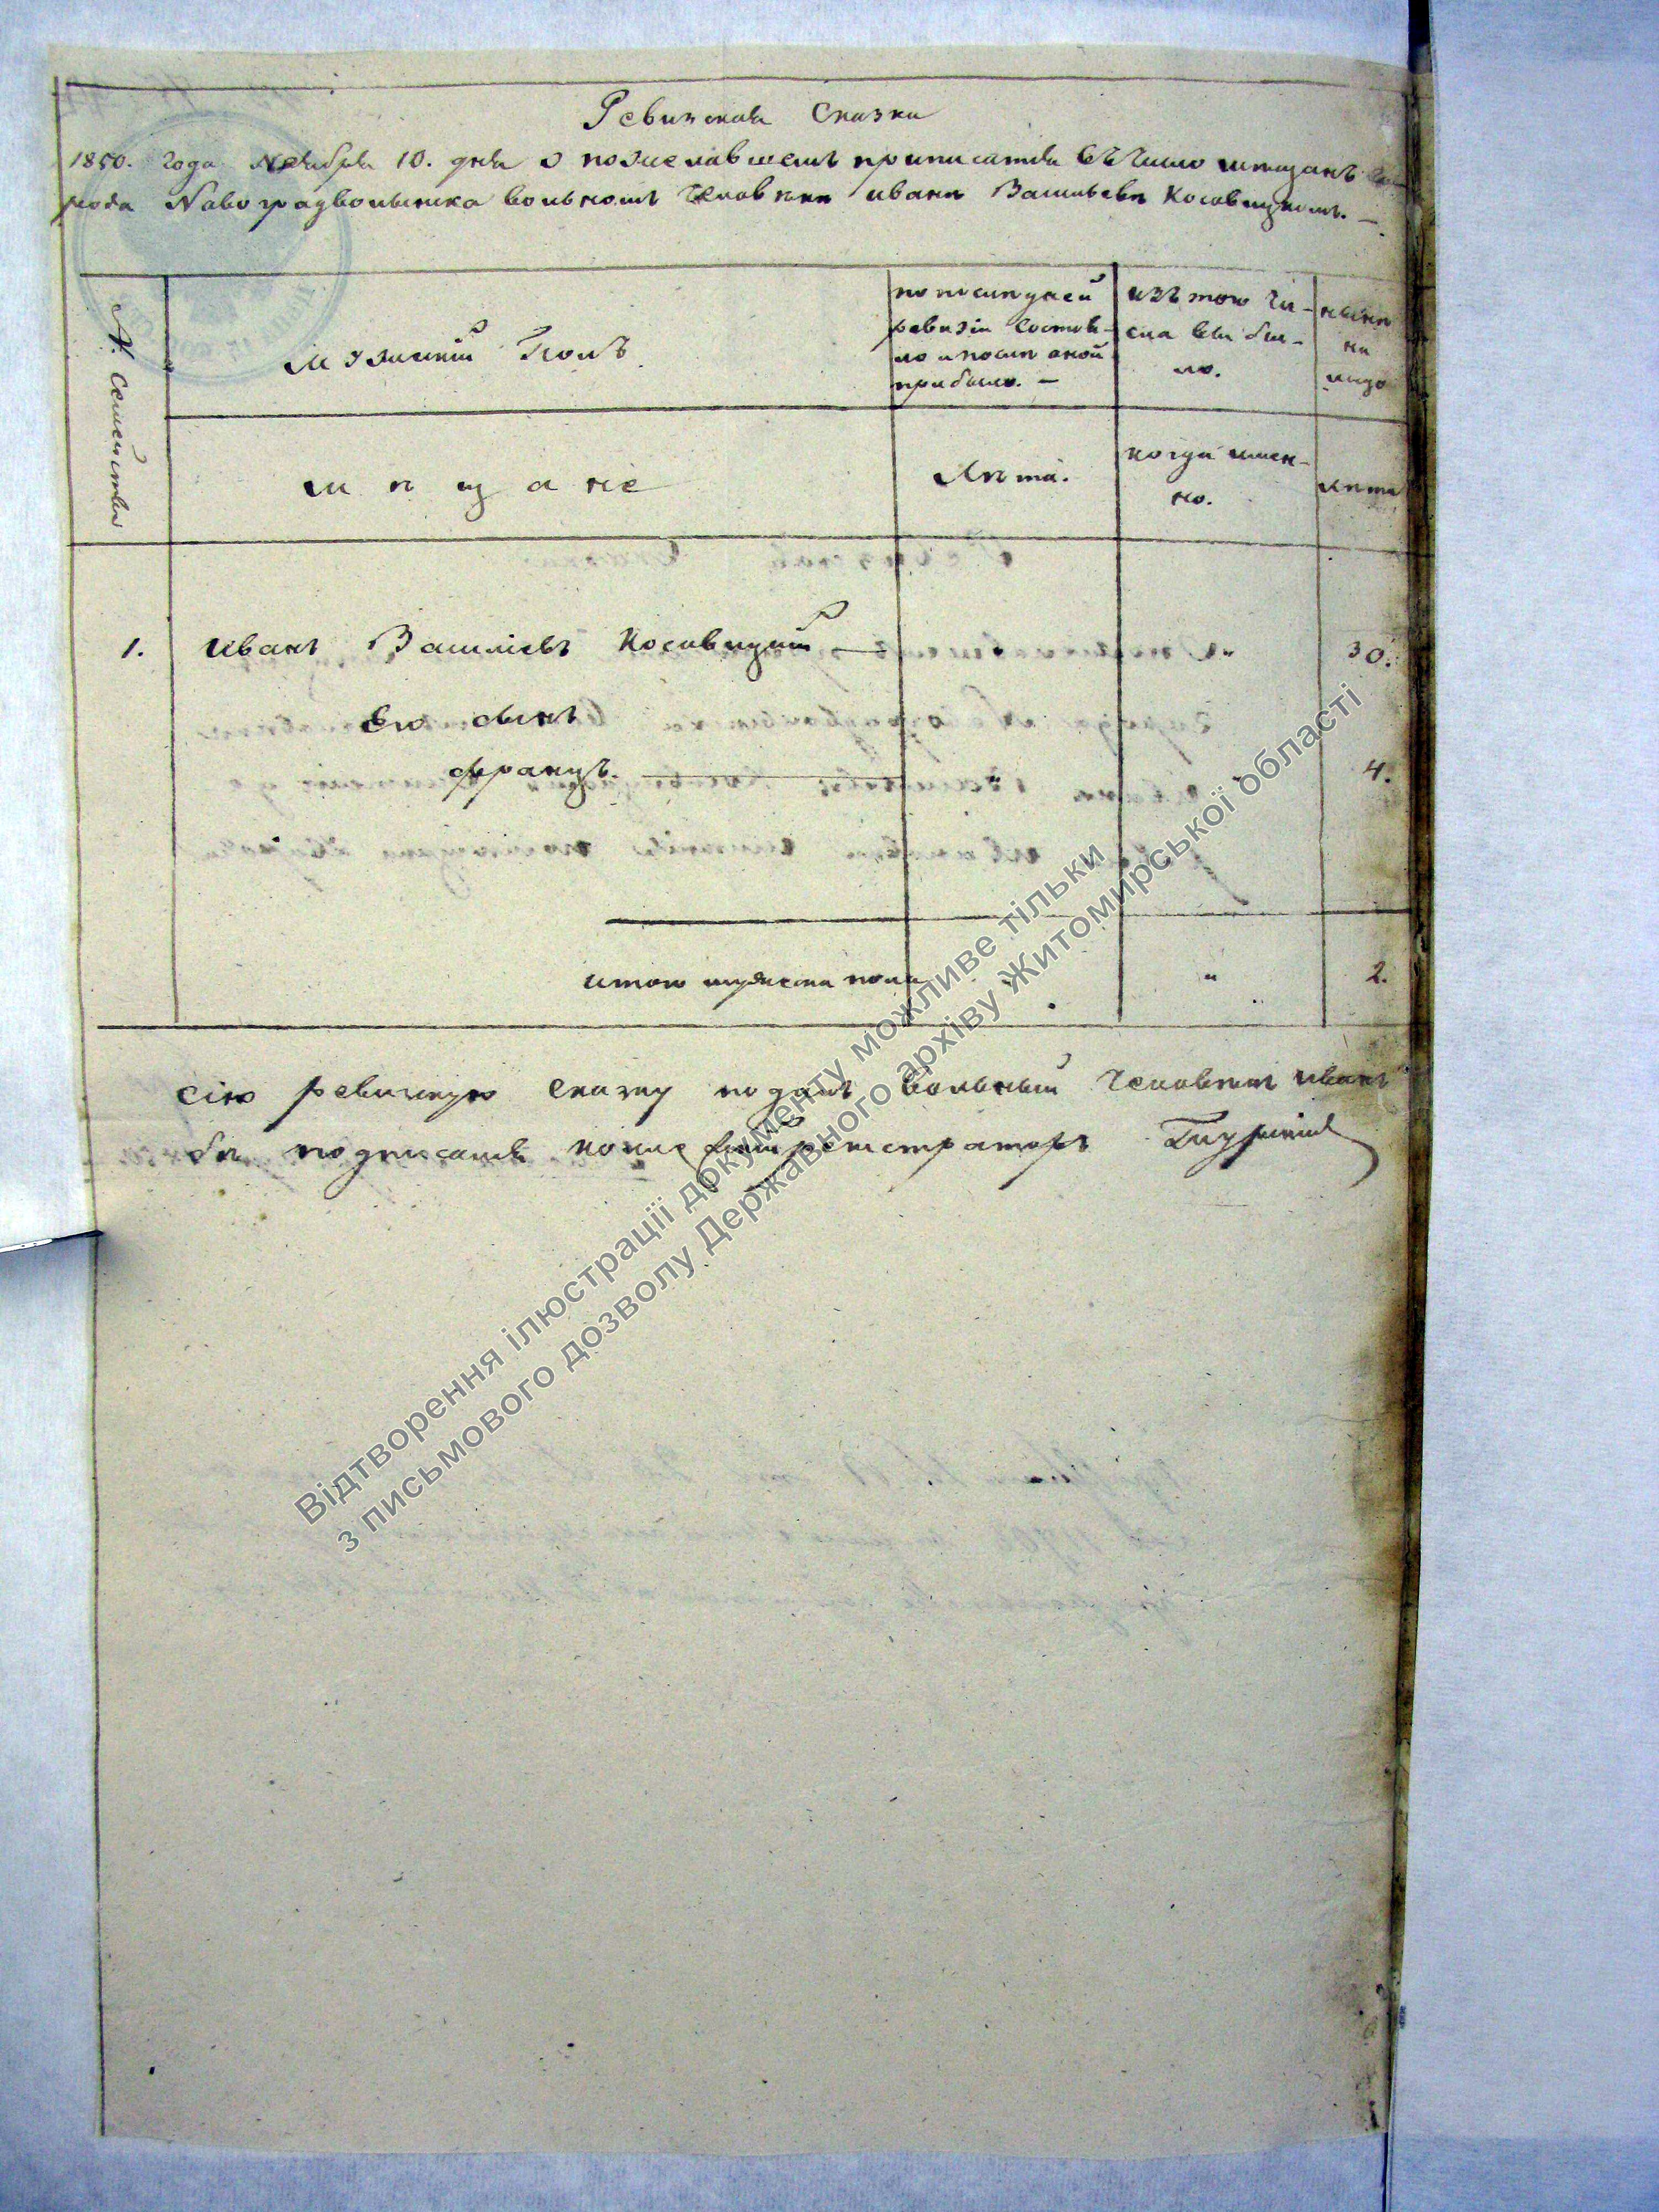 Ревижская Сказка
1850. Года Ноября 10. дня о пожелавшемъ приписатся въ число мещанъ
рода Новоградволынска вольномъ человеке Иване Васильеве Косовицкомъ. —
№. семейства
Мужский Полъ
по последней
ревизіи состоя-
ло и после оной
прибыло. —
изъ того чи-
сла выбы-
ло.
ныне
на
лицо
мѣщане
Лѣта.
когда имен-
но.
Лѣта
1. Иванъ Василіевъ Косовицкий — " 30.
Его сынъ
Францъ. — " 4.
итого мужеска пола " 2.
Сію ревижскую сказку подалъ вольный человекъ Иванъ
подписалъ колежский регистраторъ
Відтворення ілюстрації документу можливе тільки
з письмового дозволу Державного архіву Житомирської області